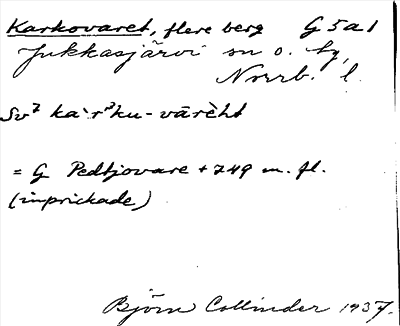 Karkovaret, flere berg G 5 a 1
Jukkasjärvi sn o. by,
Norrb. l.
Sv² ka`r³ku-vārèht
= G Pedtjovare + 749 m. fl.
(inprickade)
Björn Collinder 1937.